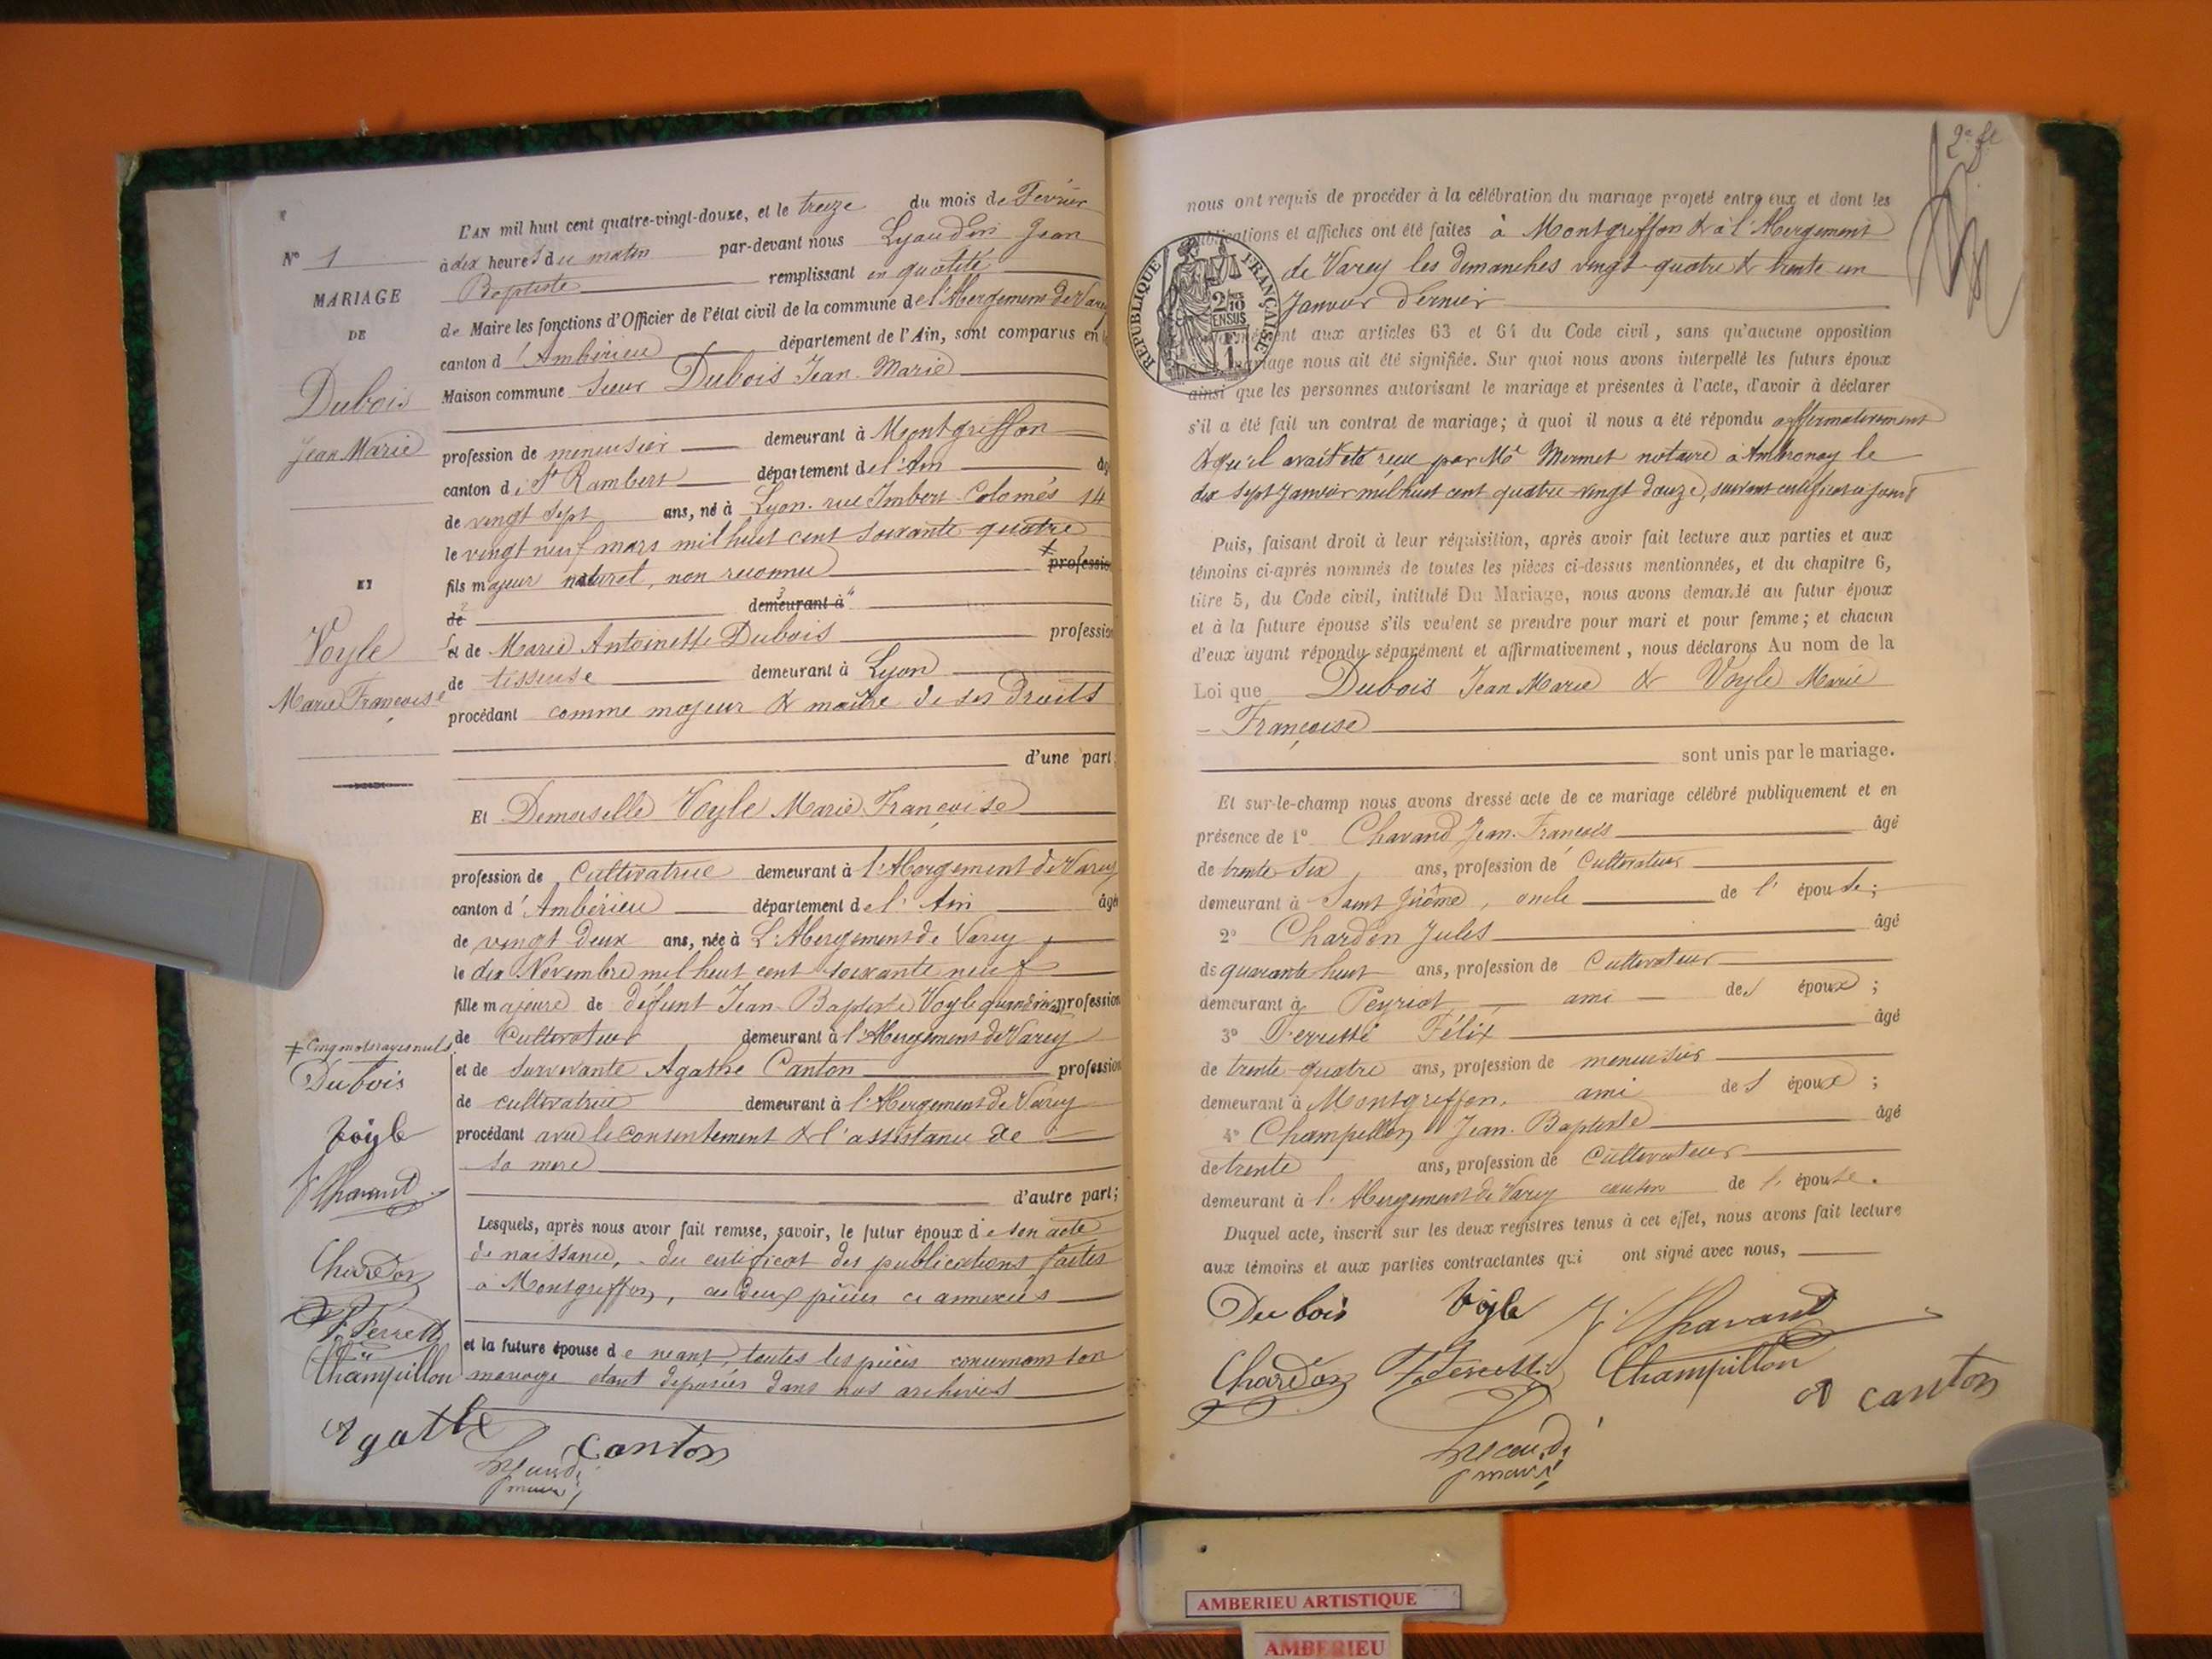 L'AN mil huit cent quatre-vingt-douze, et le treize du mois de Février
N° 1
à dix heures du matin par-devant nous Lyaudin Jean
Baptiste remplissant en qualité
MARIAGE
de Maire les fonctions d'Officier de l'état civil de la commune de l'Abergement de Varey
DE
canton d'Ambérieu département de l'Ain, sont comparus en la
Maison commune Sieur Dubois Jean Marie
Dubois
Jean Marie
profession de menuisier demeurant à Montgriffon
canton de St Rambert département de l'Ain âgé
de vingt sept ans, né à Lyon. rue Imbert Colomès 14
le vingt neuf mars mil huit cent soixante quatre
ET
fils majeur naturel, non reconnu profession
de demeurant à
Voyle
Marie Françoise
et de Marie Antoinette Dubois profession
de tisseuse demeurant à Lyon
procédant comme majeur & maître de ses droits
d'une part;
Et Demoiselle Voyle Marie Françoise
profession de Cultivatrice demeurant à l'Abergement de Varey
canton d'Ambérieu département de l'Ain âgée
de vingt deux ans, née à L'Abergement de Varey
le dix Novembre mil huit cent soixante neuf
fille majeure de défunt Jean-Baptiste Voyle quand vivait profession
de Cultivateur demeurant à l'Abergement de Varey
et de survivante Agathe Canton profession
de cultivatrice demeurant à l'Abergement de Varey
procédant avec le consentement & l'assistance de
sa mère
d'autre part;
Lesquels, après nous avoir fait remise, savoir, le futur époux de son acte
de naissance, du certificat des publications faites
à Montgriffon, ces deux pièces ci annexées
et la future épouse de néant, toutes les pièces concernant son
mariage étant déposées dans nos archives
+ Cinq mots rayés nuls
Dubois
Voyle
J Chavant
Chardon
F. Ferretti
Champillon
Agathe Canton
maire
2e ft
nous ont requis de procéder à la célébration du mariage projeté entre eux et dont les
publications et affiches ont été faites à Montgriffon & à l'Abergement
de Varey les dimanches vingt-quatre & trente un
Janvier dernier
REPUBLIQUE FRANÇAISE
2/10 EN SUS
1
conformément aux articles 63 et 64 du Code civil, sans qu'aucune opposition
au mariage nous ait été signifiée. Sur quoi nous avons interpellé les futurs époux
ainsi que les personnes autorisant le mariage et présentes à l'acte, d'avoir à déclarer
s'il a été fait un contrat de mariage; à quoi il nous a été répondu affirmativement
& qu'il avait été reçu par Me Mermet notaire à Ambronay le
dix sept Janvier mil huit cent quatre-vingt douze, suivant certificat ci joint
Puis, faisant droit à leur réquisition, après avoir fait lecture aux parties et aux
témoins ci-après nommés de toutes les pièces ci-dessus mentionnées, et du chapitre 6,
titre 5, du Code civil, intitulé Du Mariage, nous avons demandé au futur époux
et à la future épouse s'ils veulent se prendre pour mari et pour femme; et chacun
d'eux ayant répondu séparément et affirmativement, nous déclarons Au nom de la
Loi que Dubois Jean Marie & Voyle Marie
Françoise
sont unis par le mariage.
Et sur-le-champ nous avons dressé acte de ce mariage célébré publiquement et en
présence de 1° Chavand Jean-François âgé
de trente six ans, profession de Cultivateur
demeurant à Saint Jérôme, oncle de l'épouse;
2° Chardon Jules âgé
de quarante huit ans, profession de Cultivateur
demeurant à Peyriat ami de l'époux;
3° Félix âgé
de trente quatre ans, profession de menuisier
demeurant à Montgriffon, ami de l'époux;
4° Champillon Jean-Baptiste âgé
de trente ans, profession de Cultivateur
demeurant à l'Abergement de Varey cousin de l'épouse.
Duquel acte, inscrit sur les deux registres tenus à cet effet, nous avons fait lecture
aux témoins et aux parties contractantes qui ont signé avec nous,
Dubois Voyle J. Chavant
Chardon F. Ferretti Champillon A canton
maire
AMBERIEU ARTISTIQUE
AMBERIEU